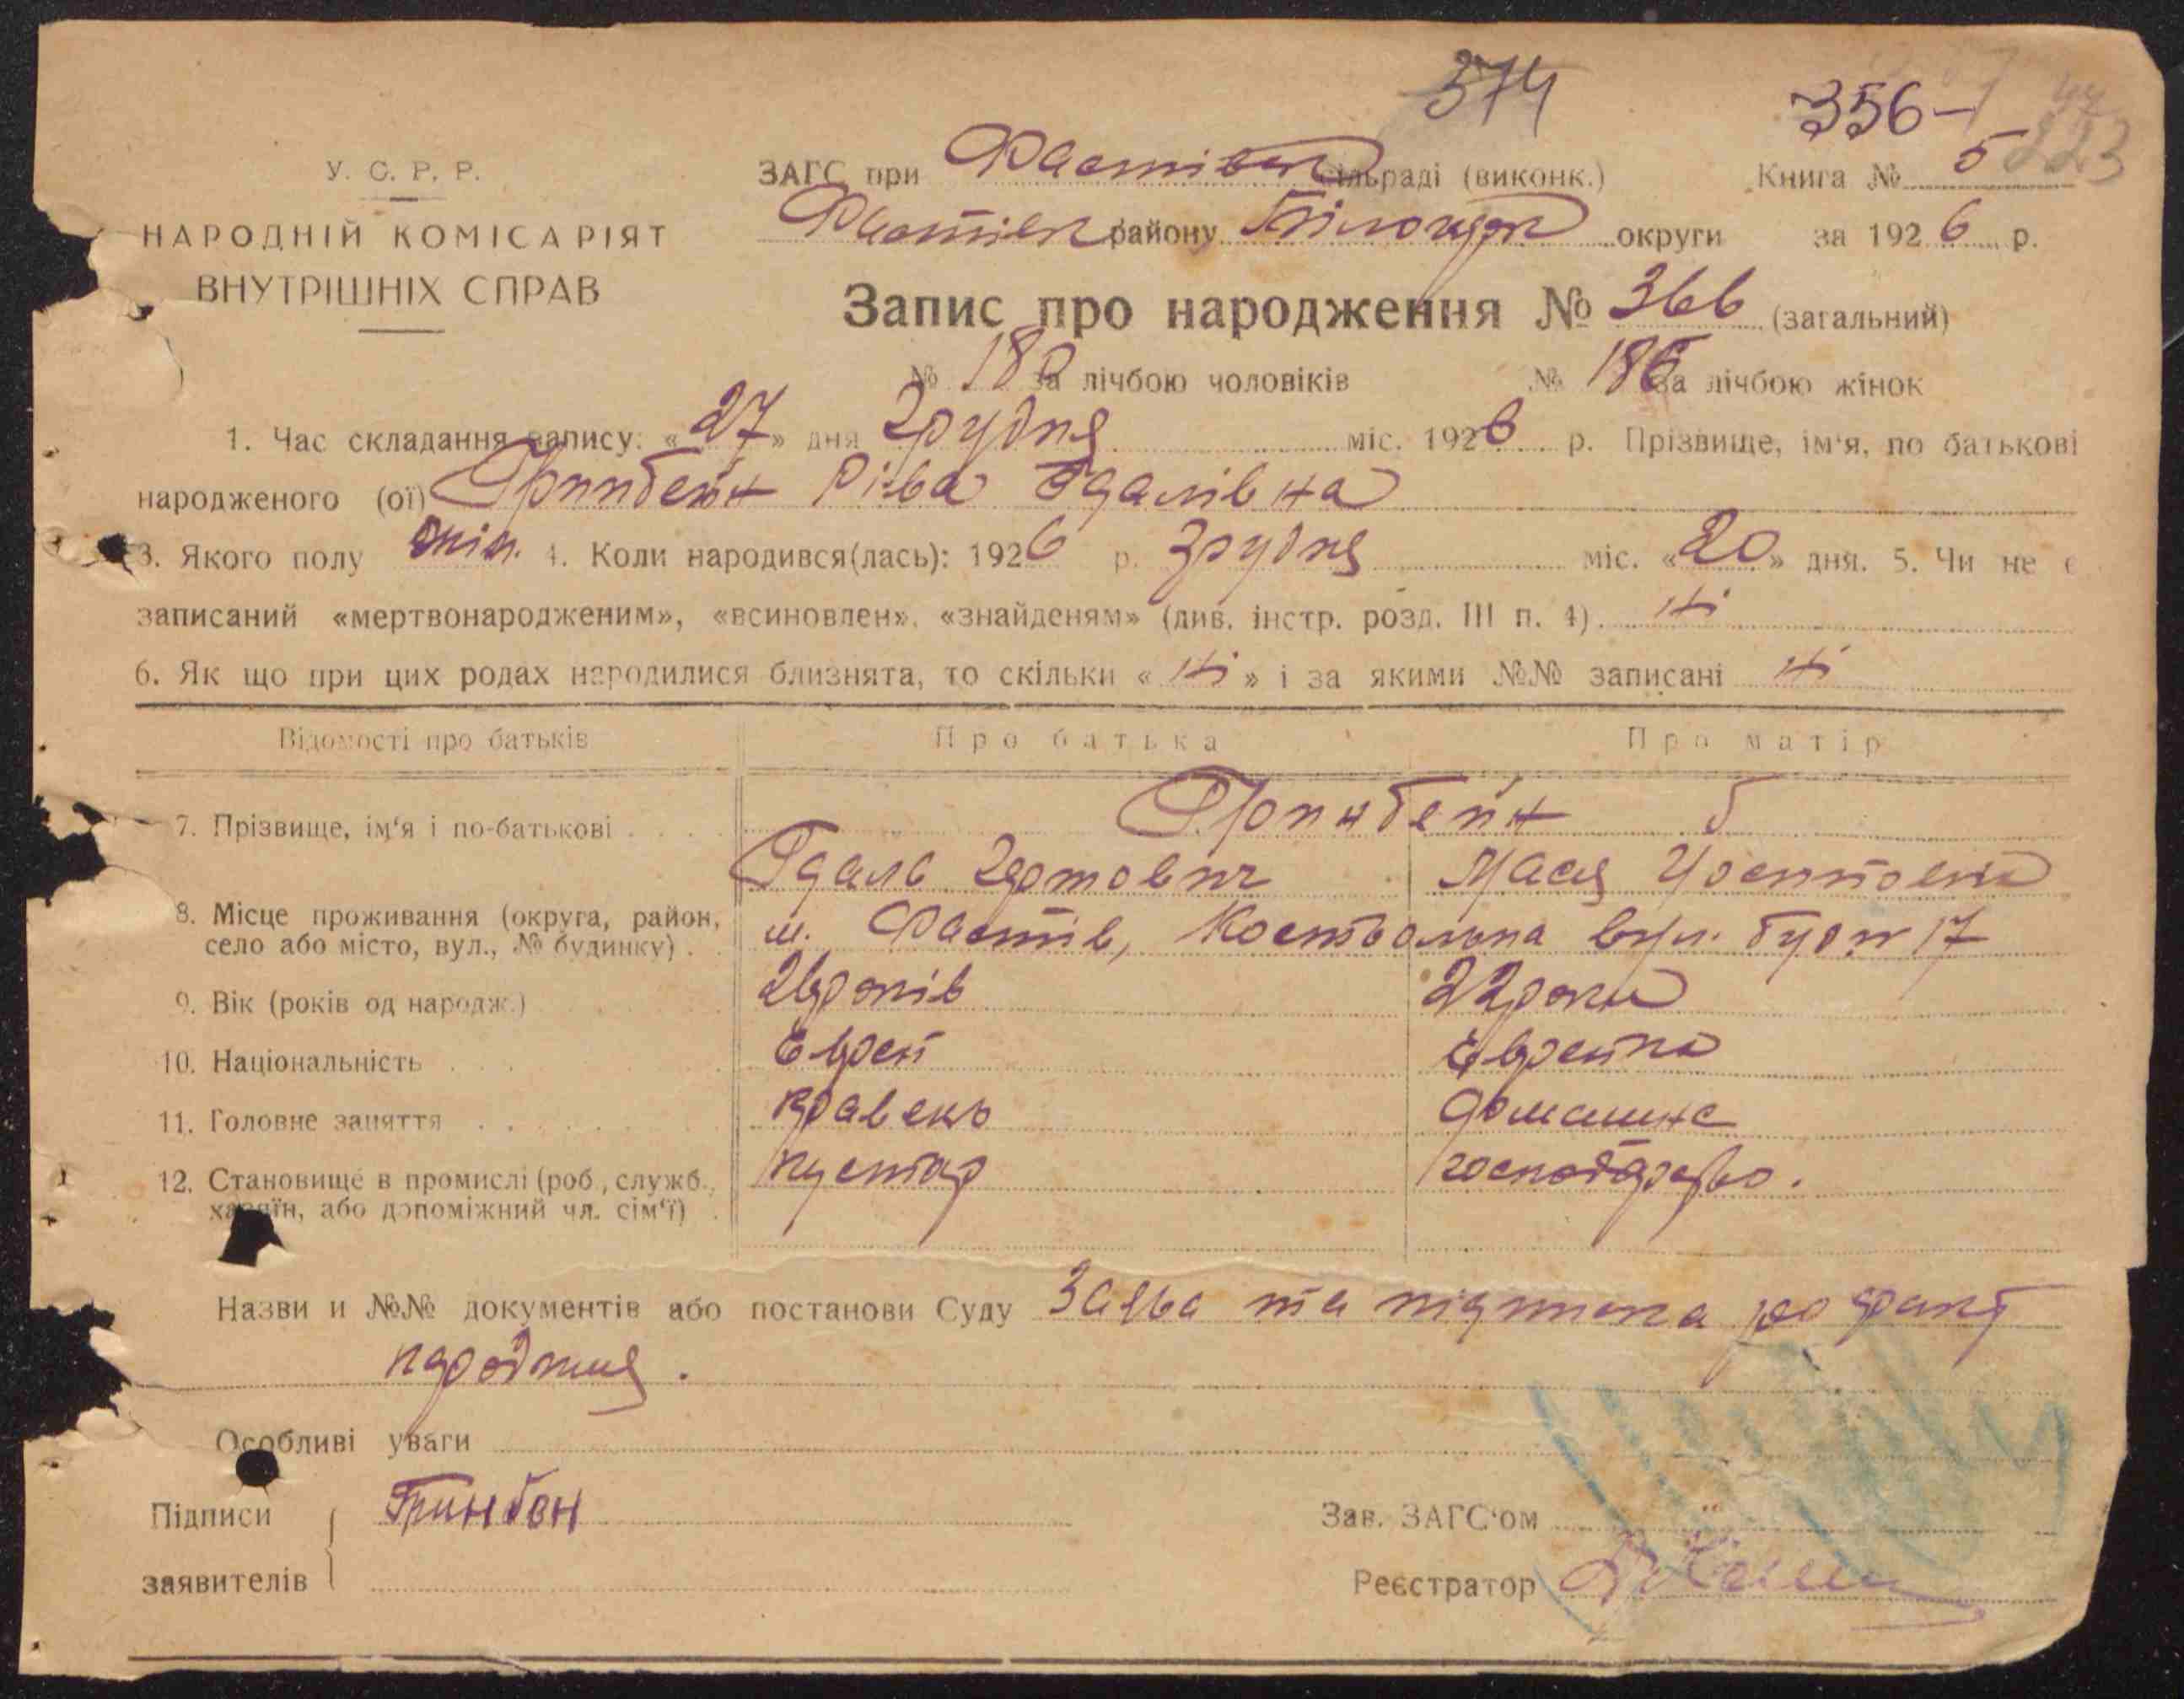 574
356-
223
У. С. Р. Р.
НАРОДНІЙ КОМІСАРІЯТ
ВНУТРІШНІХ СПРАВ
ЗАГС при Фастівськ сільраді (виконк.) Книга № 5
Фастівськ району Білоцерк округи за 1926 р.
Запис про народження № 366 (загальний)
№ 180 за лічбою чоловіків № 186 за лічбою жінок
1. Час складання запису: «27» дня Грудня міс. 1926 р. Прізвище, ім'я, по батькові
народженого (ої) Гринбейн Ріва Гдалівна
3. Якого полу жін. 4. Коли народився(лась): 1926 р. Грудня міс. «20» дня. 5. Чи не є
записаний «мертвонародженим», «всиновлен», «знайденям» (див. інстр. розд. III п. 4). ні
6. Як що при цих родах народилися близнята, то скільки «ні» і за якими №№ записані ні
Відомості про батьків Про батька Про матір
7. Прізвище, ім'я і по-батькові Гринбейн
Гдаль Мася
8. Місце проживання (округа, район, село або місто, вул., № будинку) м. Фастів, Костьольна вул. буд № 17
9. Вік (років од народж.) 26 років 22 роки
10. Національність Єврей Єврейка
11. Головне заняття кравець домашнє
12. Становище в промислі (роб., служб., хазяїн, або допоміжний чл. сім'ї) кустар господарство.
Назви и №№ документів або постанови Суду Заява та підписка про факт
народження.
Особливі уваги
Підписи Гринбен
заявителів
Зав. ЗАГС'ом
Реєстратор